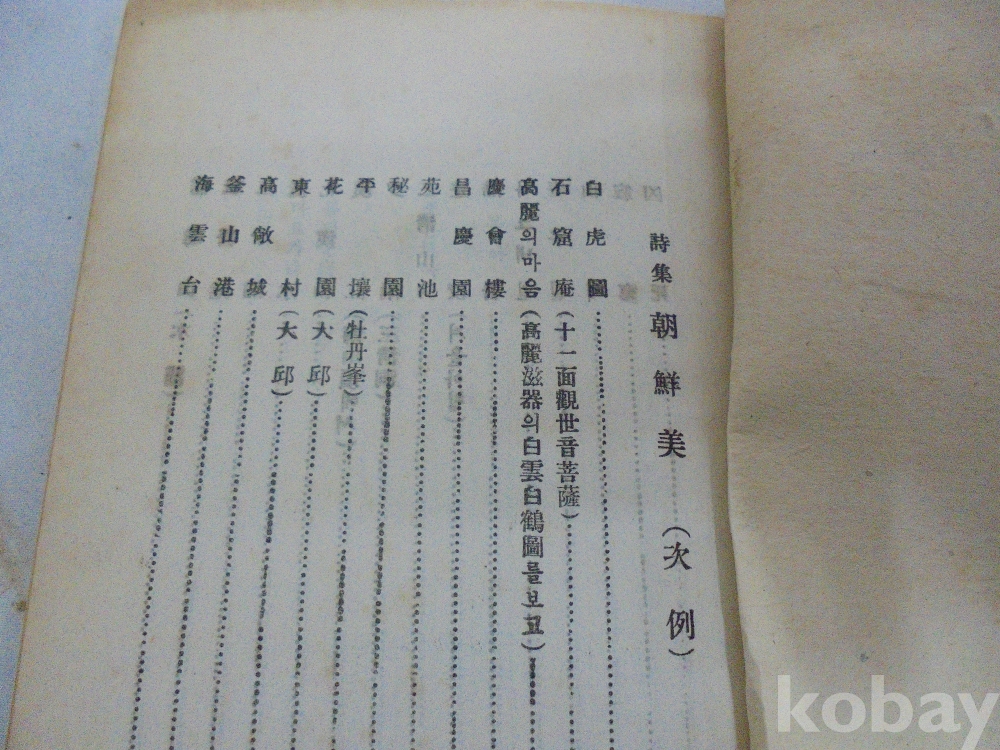 詩集 朝鮮美 (次例)
白虎圖
石窟庵(十一面觀世音菩薩)
高麗의마음(高麗滋器의白雲白鶴圖를보고)
慶會樓
昌慶園
苑池
秘園
平壤(牡丹峯)
花園(大邱)
東村(大邱)
高敞城
釜山港
海雲台
kobay